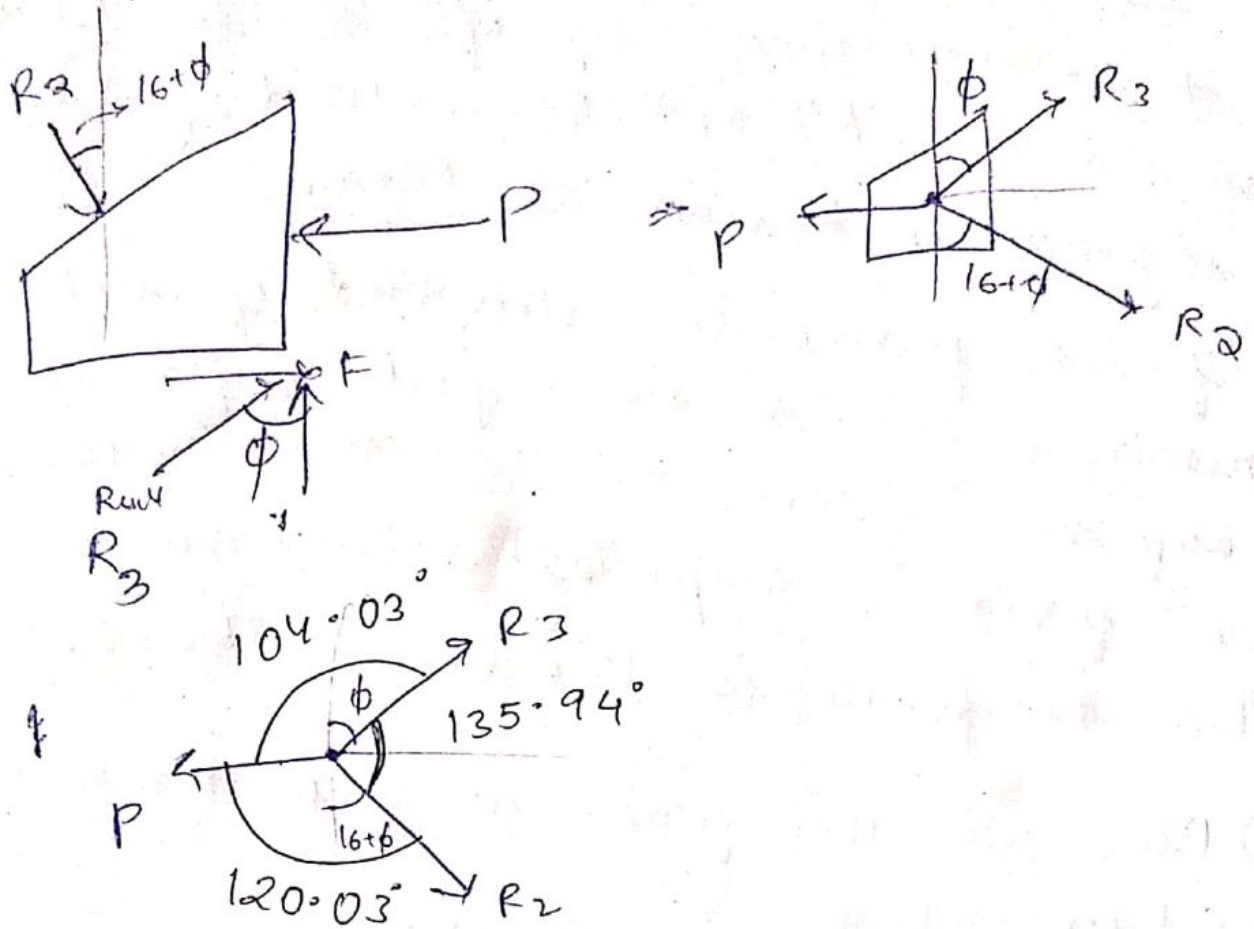 R2
16+ϕ
P
F
ϕ
R3
ϕ
R3
P
16+ϕ
R2
104.03°
R3
ϕ
135.94°
P
16+ϕ
120.03°
R2